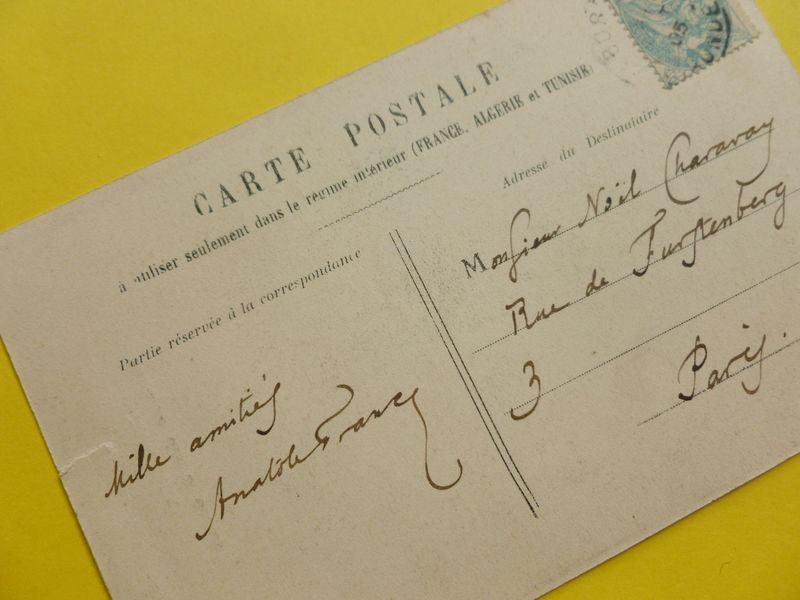 CARTE POSTALE
à utiliser seulement dans le régime intérieur (FRANCE, ALGERIE et TUNISIE)
Partie réservée à la correspondance
Adresse du Destinataire
Mille amitiés
Anatole France
Monsieur Noël Charavay
Rue de Furstenberg
3 Paris.